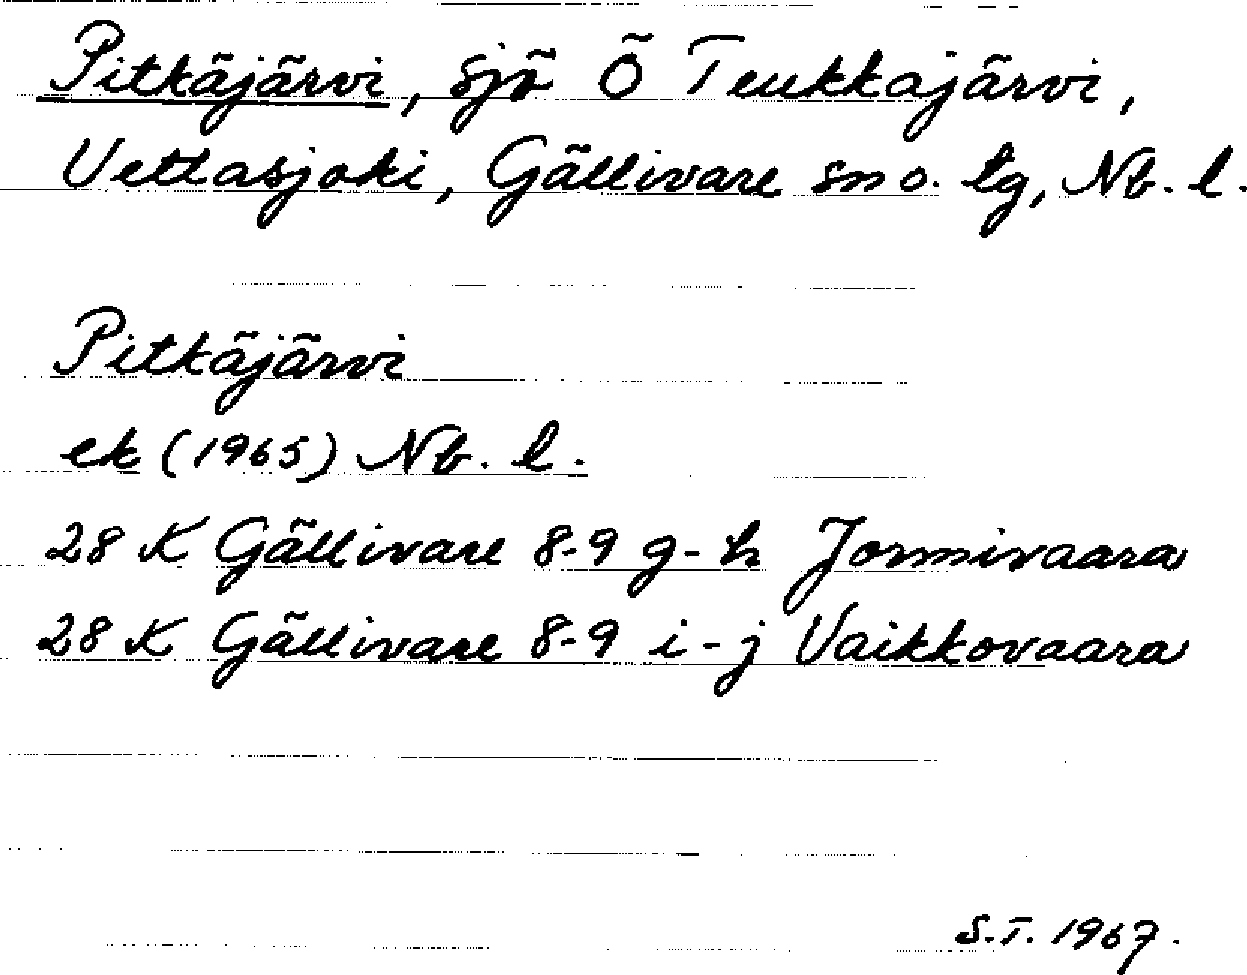 Pitkäjärvi, sjö Ö Teukkajärvi,
Vettasjoki, Gällivare sn o. lg, Nb. l.
Pitkäjärvi
ek (1965) Nb. l.
28 K Gällivare 8-9 g-h Jormivaara
28 K Gällivare 8-9 i-j Vaikkovaara
S.T. 1967.